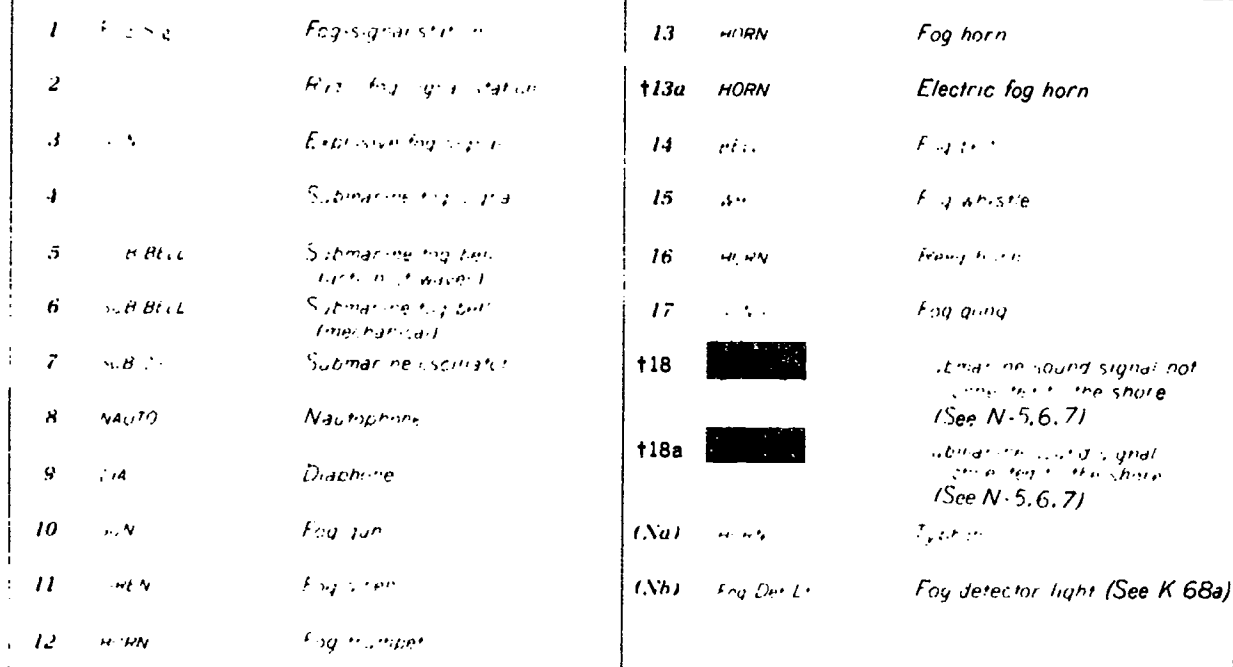 1 Fog-signal station
2 fog signal station
3 Explosive fog signal
4 Submarine fog signal
5 BELL Submarine fog bell
6 SUB BELL Submarine fog bell
(mechanical)
7 SUB Submarine oscillator
8 NAUTO Nautophone
9 DIA Diaphone
10 GUN Fog gun
11 Fog siren
12 HORN Fog trumpet
13 HORN Fog horn
†13a HORN Electric fog horn
14 BELL Fog bell
15 Fog whistle
16 HORN Reed horn
17 Fog gong
†18 Submarine sound signal not
connected to the shore
(See N-5,6,7)
†18a Submarine sound signal
connected to the shore
(See N-5,6,7)
(Na) HORN Typhon
(Nb) Fog Det Lt Fog detector light (See K 68a)